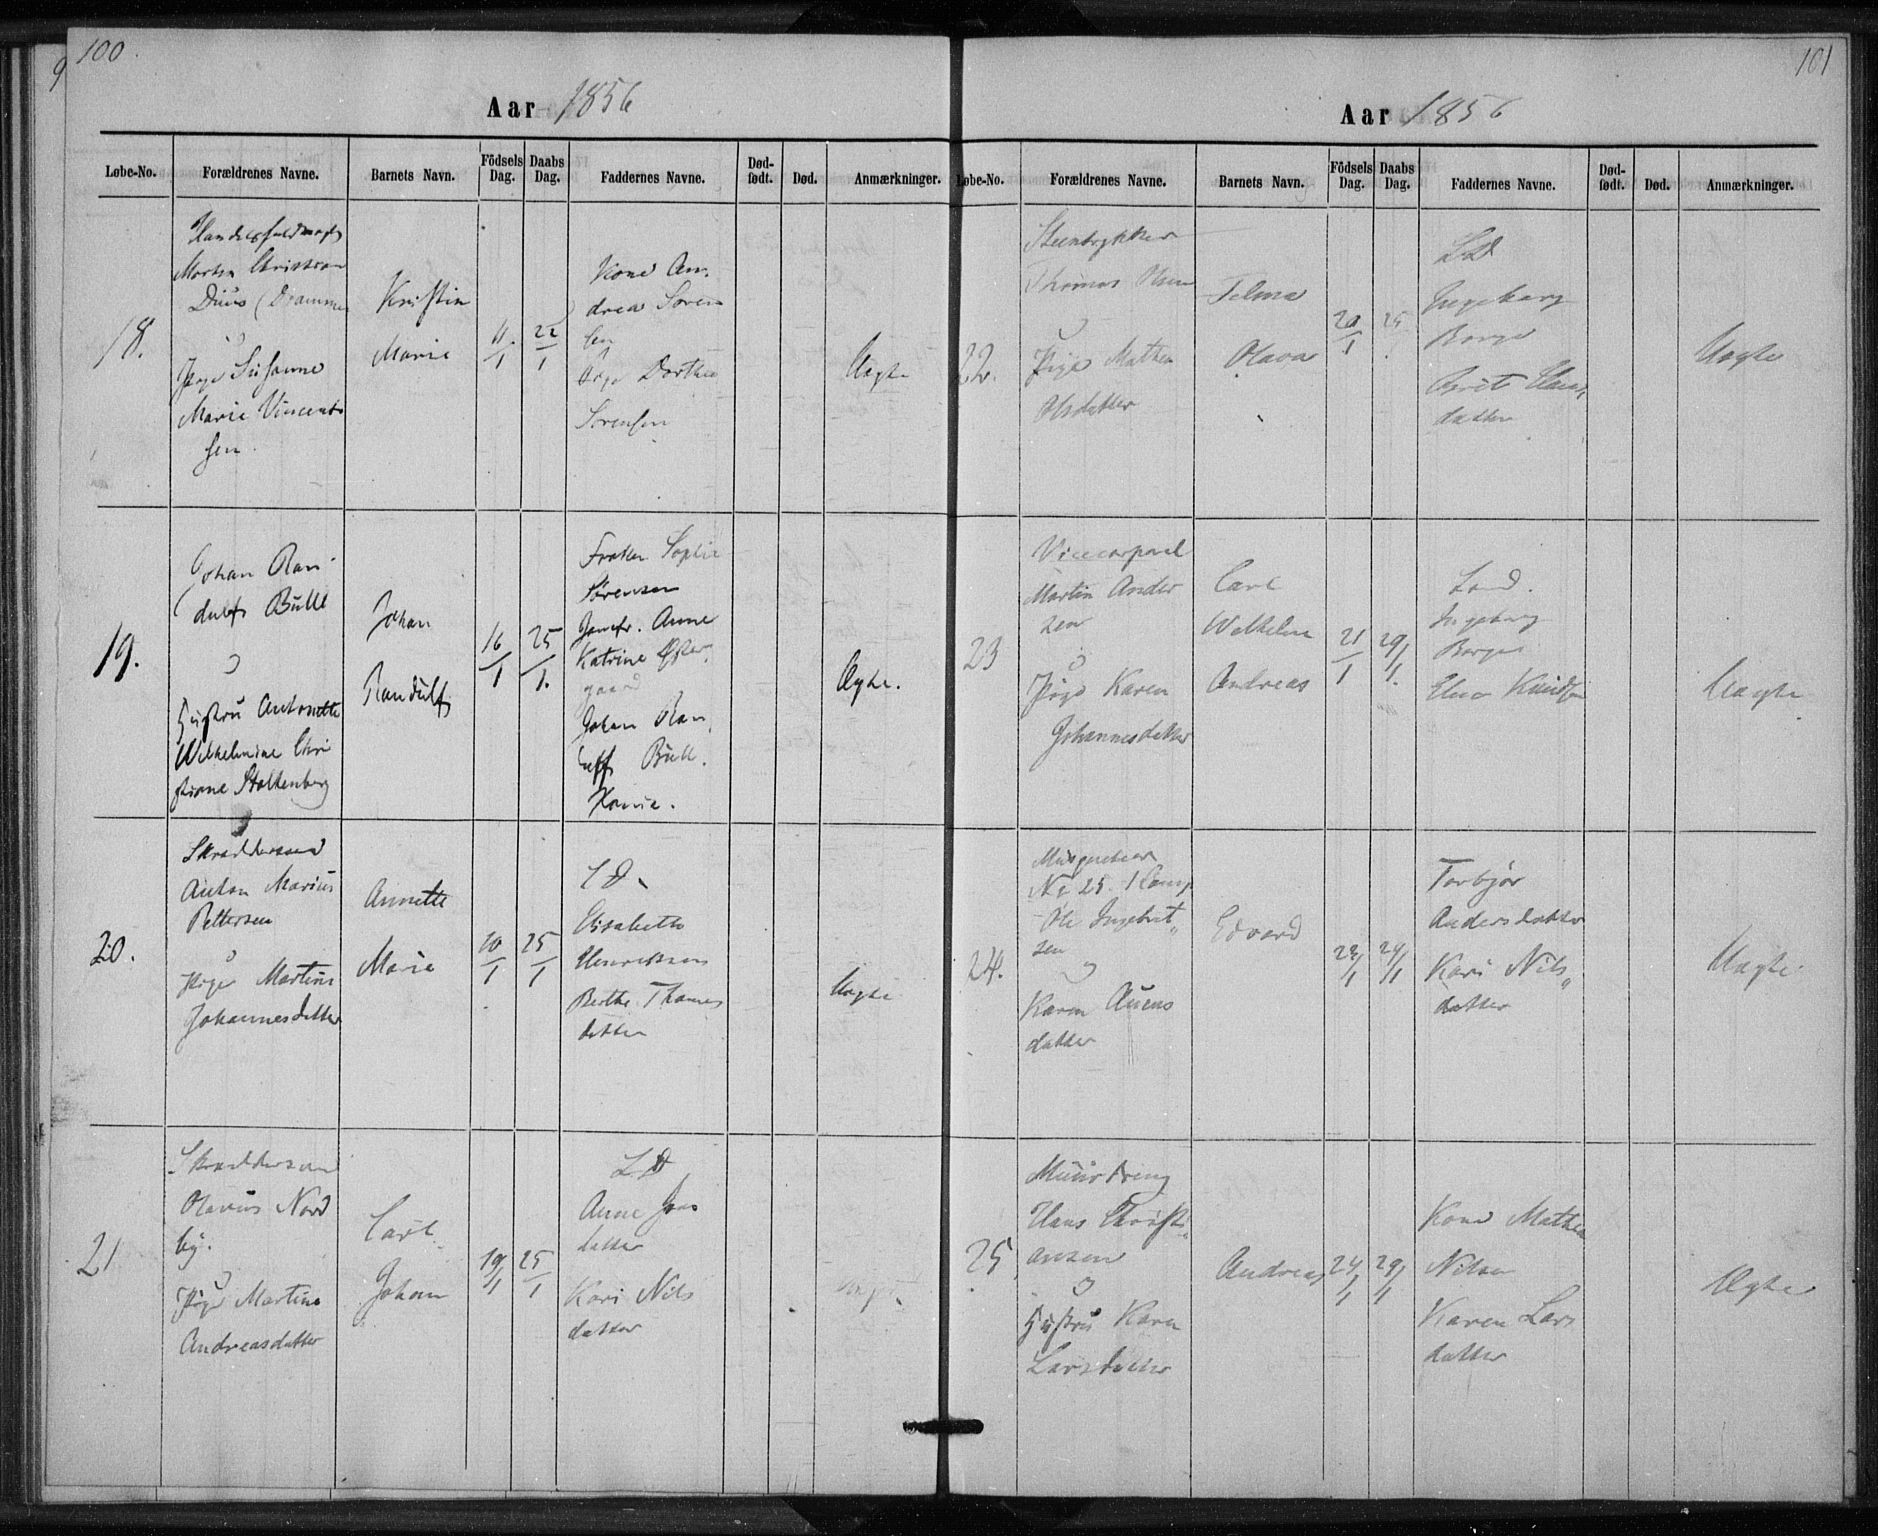 100.
Aar 1856
Løbe-No. Forældrenes Navne. Barnets Navn. Födsels Dag. Daabs Dag. Faddernes Navne. Død-født. Død. Anmærkninger.
18.
Martin Christian
Duus (Drammen
o
Pige Susanne
Marie Vincent
sen.
Kristin
Marie
11/1
22/1
Kone An-
drea Soren
sen
Pige Dorthea
Sorensen
Uagte
19.
Johan Ran-
dulf Bull
o
Hustru Antonette
Wilhelmine Chri
stiane Stoltenberg
Johan
Randulf
16/1
25/1.
Frøken Sophie
Sørensen
Jomfr. Anne
Katrine Øster
gaard
Johan Ran
ulff Bull.
Ægte.
20.
Skräddersvend
Anton Marius
Pettersen
o
Pige Martine
Johannesdatter
Annette
Marie
10/1
25/1
LD
Elisabeth
Henriksen
Berthe Thomes
datter
Uagte
21
Skräddersven
Olavus Nord
by.
o
Pige Martine
Andreasdatter
Carl
Johan
19/1
25/1
LD
Anne Jens
datter
Kari Nils
datter
101
Aar 1856
Løbe-No. Forældrenes Navne. Barnets Navn. Födsels Dag. Daabs Dag. Faddernes Navne. Død-født. Død. Anmærkninger.
22.
Steentrykker
Thomas Olsen
o
Pige Mathea
Olsdatter
Telma
Olava
20/1
25
LD
Ingeborg
Borge
Berit Hans
datter
Uagte
23
Vicecorporal
Martin Ander
sen
o
Pige Karen
Johannesdatter
Carl
Wilhelm
Andreas
21/1
29/1.
Ingeborg
Borge
Elen Knudsen
Uagte
24.
Musqueteer
No 25. 1 Comp
Ole Ingebret
sen
o
Karen Auens
datter
Edvard
23/1
29/1
Torbjør
Andersdatter
Kari Nils
datter
Uagte.
25
Muurdreng
Hans Christi
ansen
o
Hustru Karen
Larsdatter
Andreas
24/1
29/1
Kone Mathea
Nilsen
Karen Lars
datter
Ægte